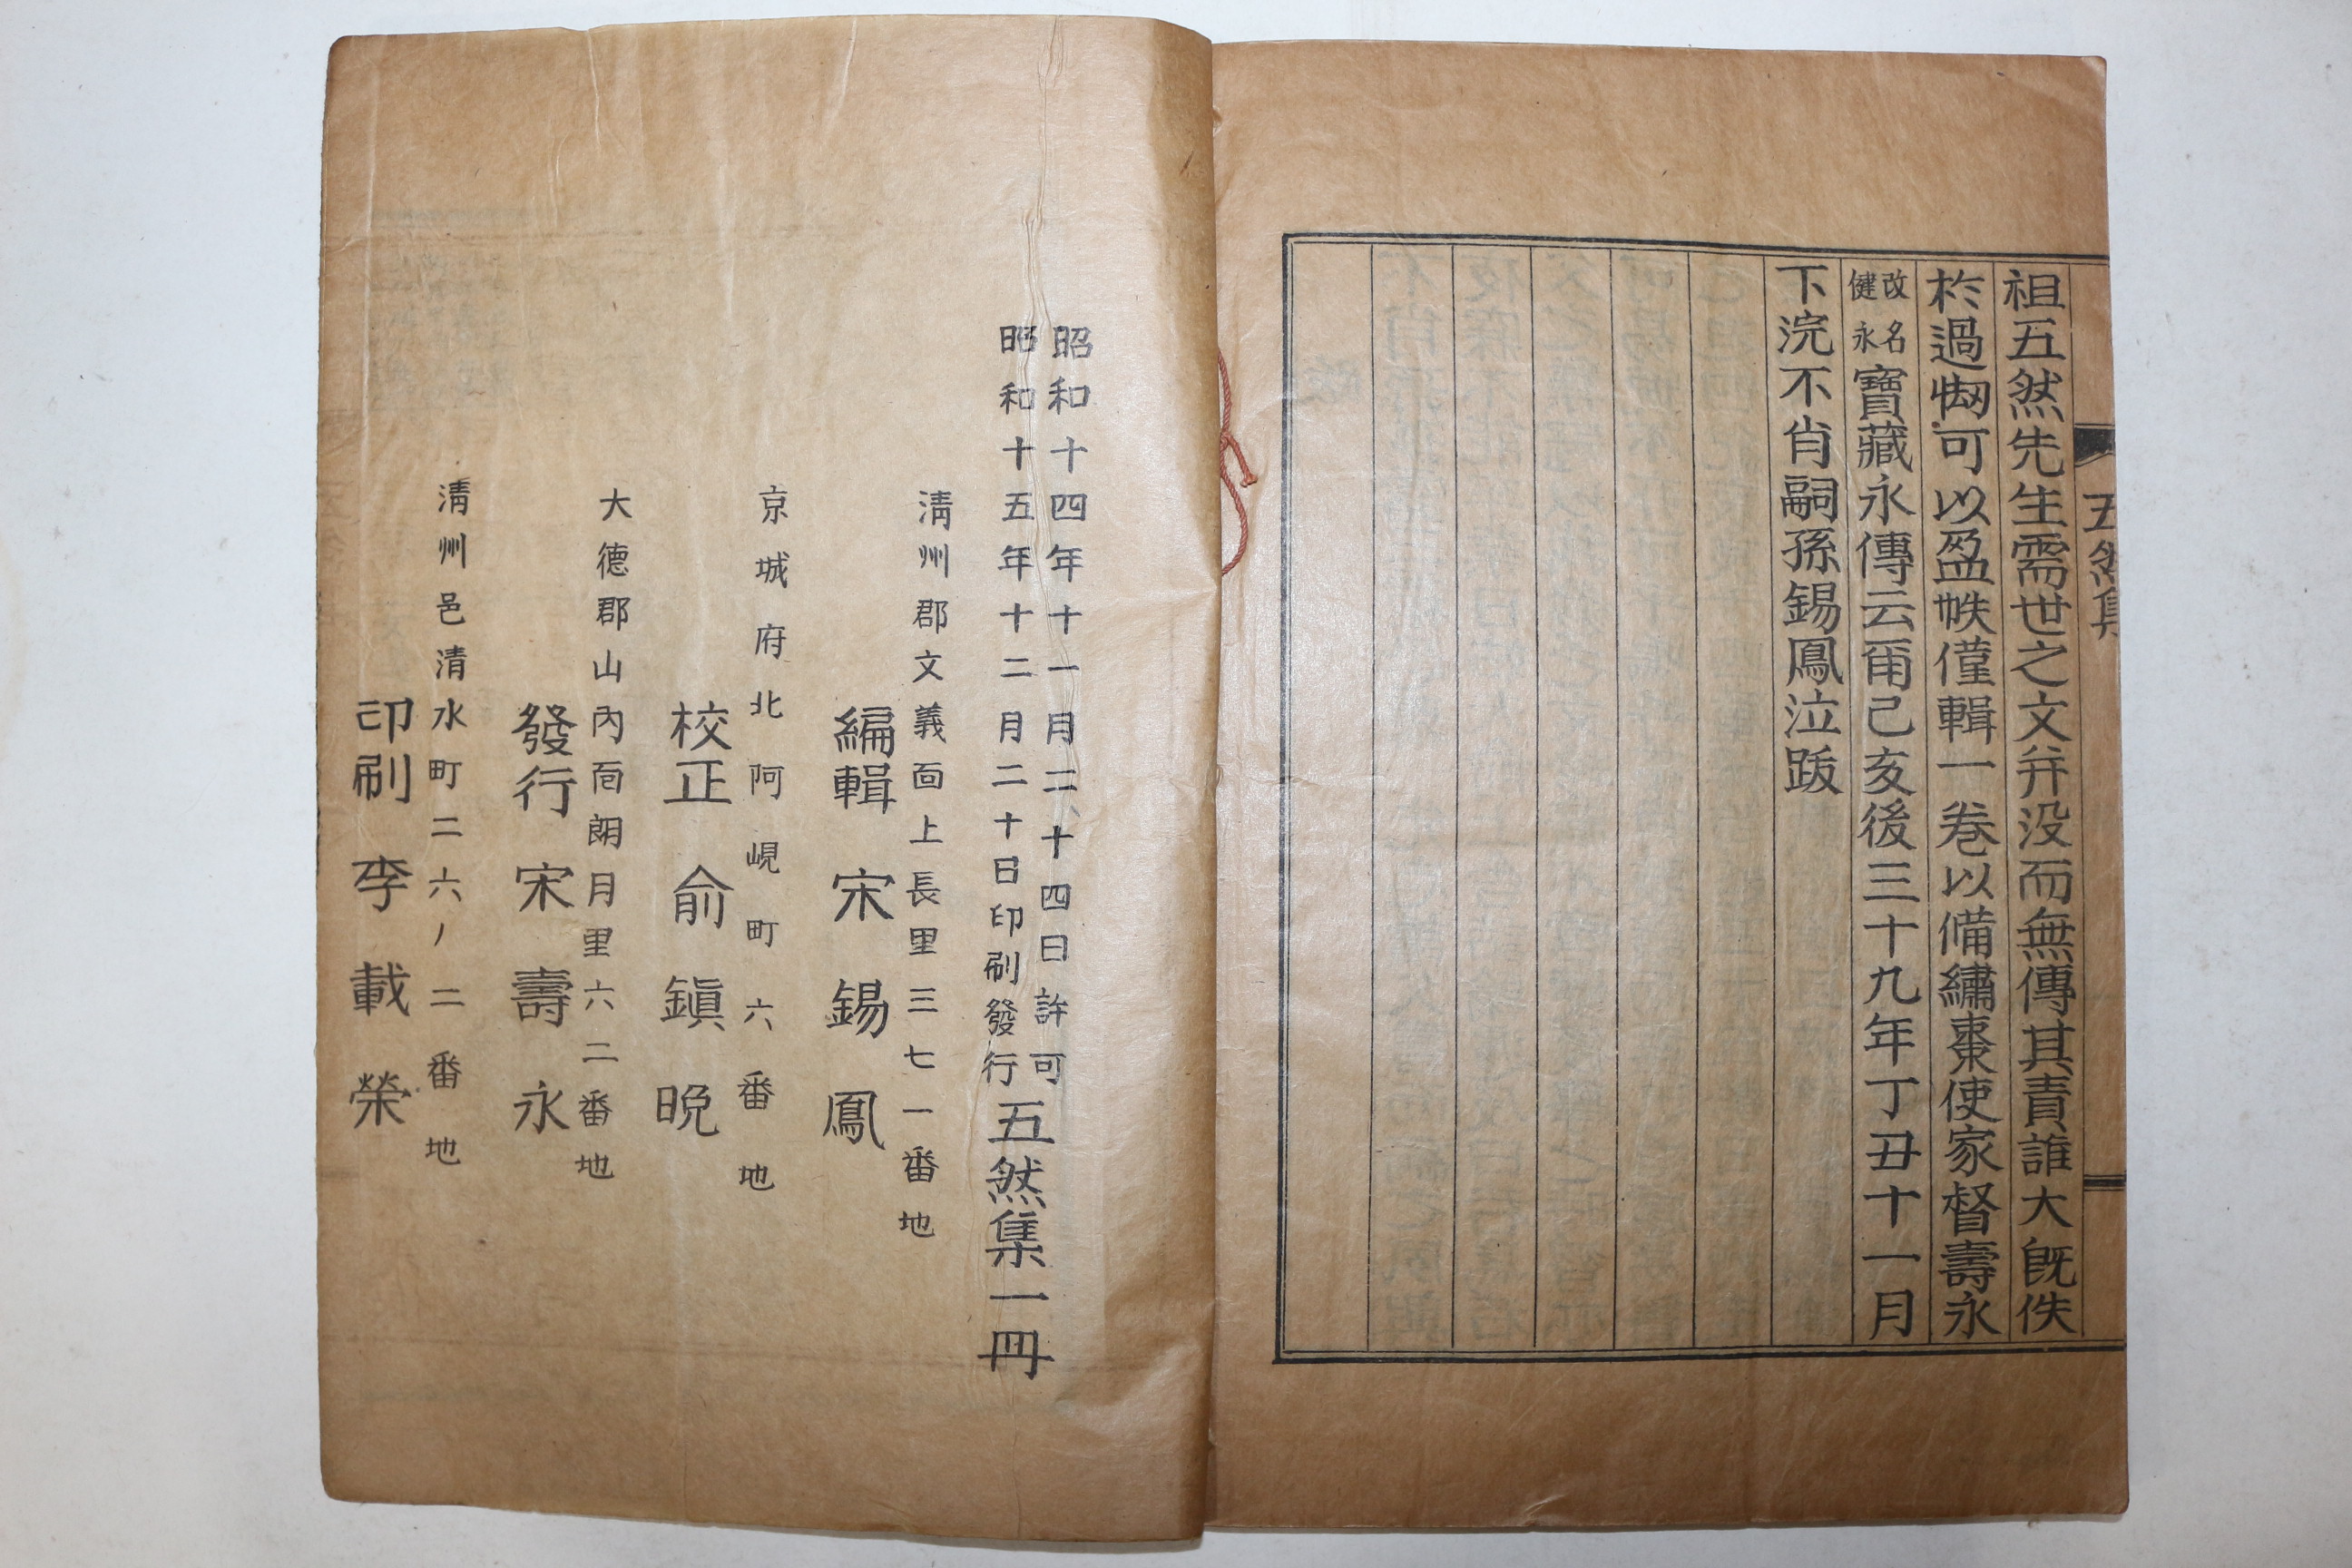 五然集
祖五然先生需世之文幷没而無傳其責誰大旣佚
於過㤼可以盈帙僅輯一卷以備繡棗使家督壽永
改名健永寶藏永傳云爾己亥後三十九年丁丑十一月
下浣不肖嗣孫錫鳳泣跋
昭和十四年十一月二十四日許可
昭和十五年十二月二十日印刷發行
五然集一冊
淸州郡文義面上長里三七一番地
編輯 宋錫鳳
京城府北阿峴町六番地
校正 俞鎭晩
大德郡山內面朗月里六二番地
發行 宋壽永
淸州邑清水町二六ノ二番地
印刷 李載榮